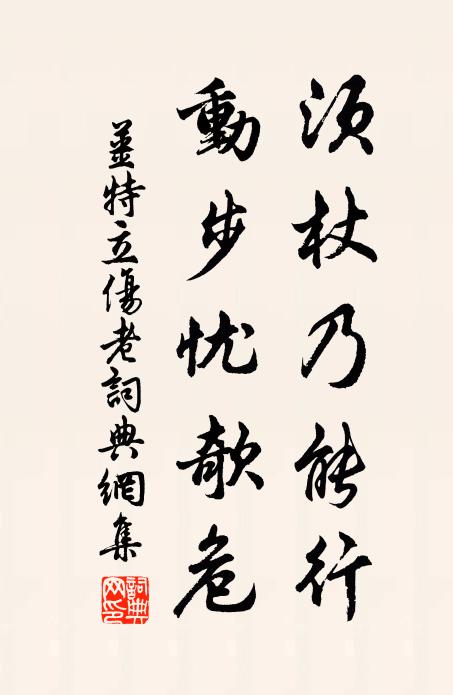 須杖乃能行
動步忧欹危
姜特立傷老詞典網集
詞典網印